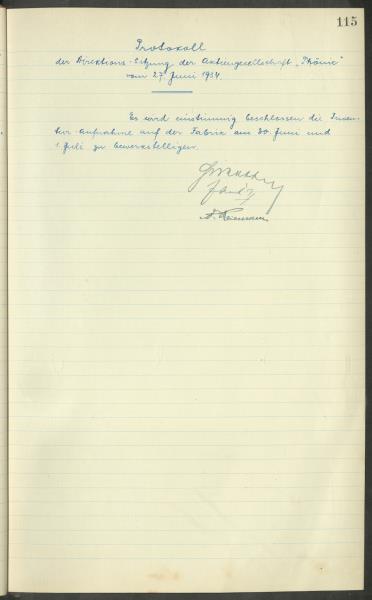 115
Protokoll
der Direktions-Sitzung der Aktiengesellschaft "Phönix"
vom 27. Juni 1934.
Es wird einstimmig beschlossen die Inven-
tur-Aufnahme auf der Fabrik am 30. Juni und
1. Juli zu bewerkstelligen.